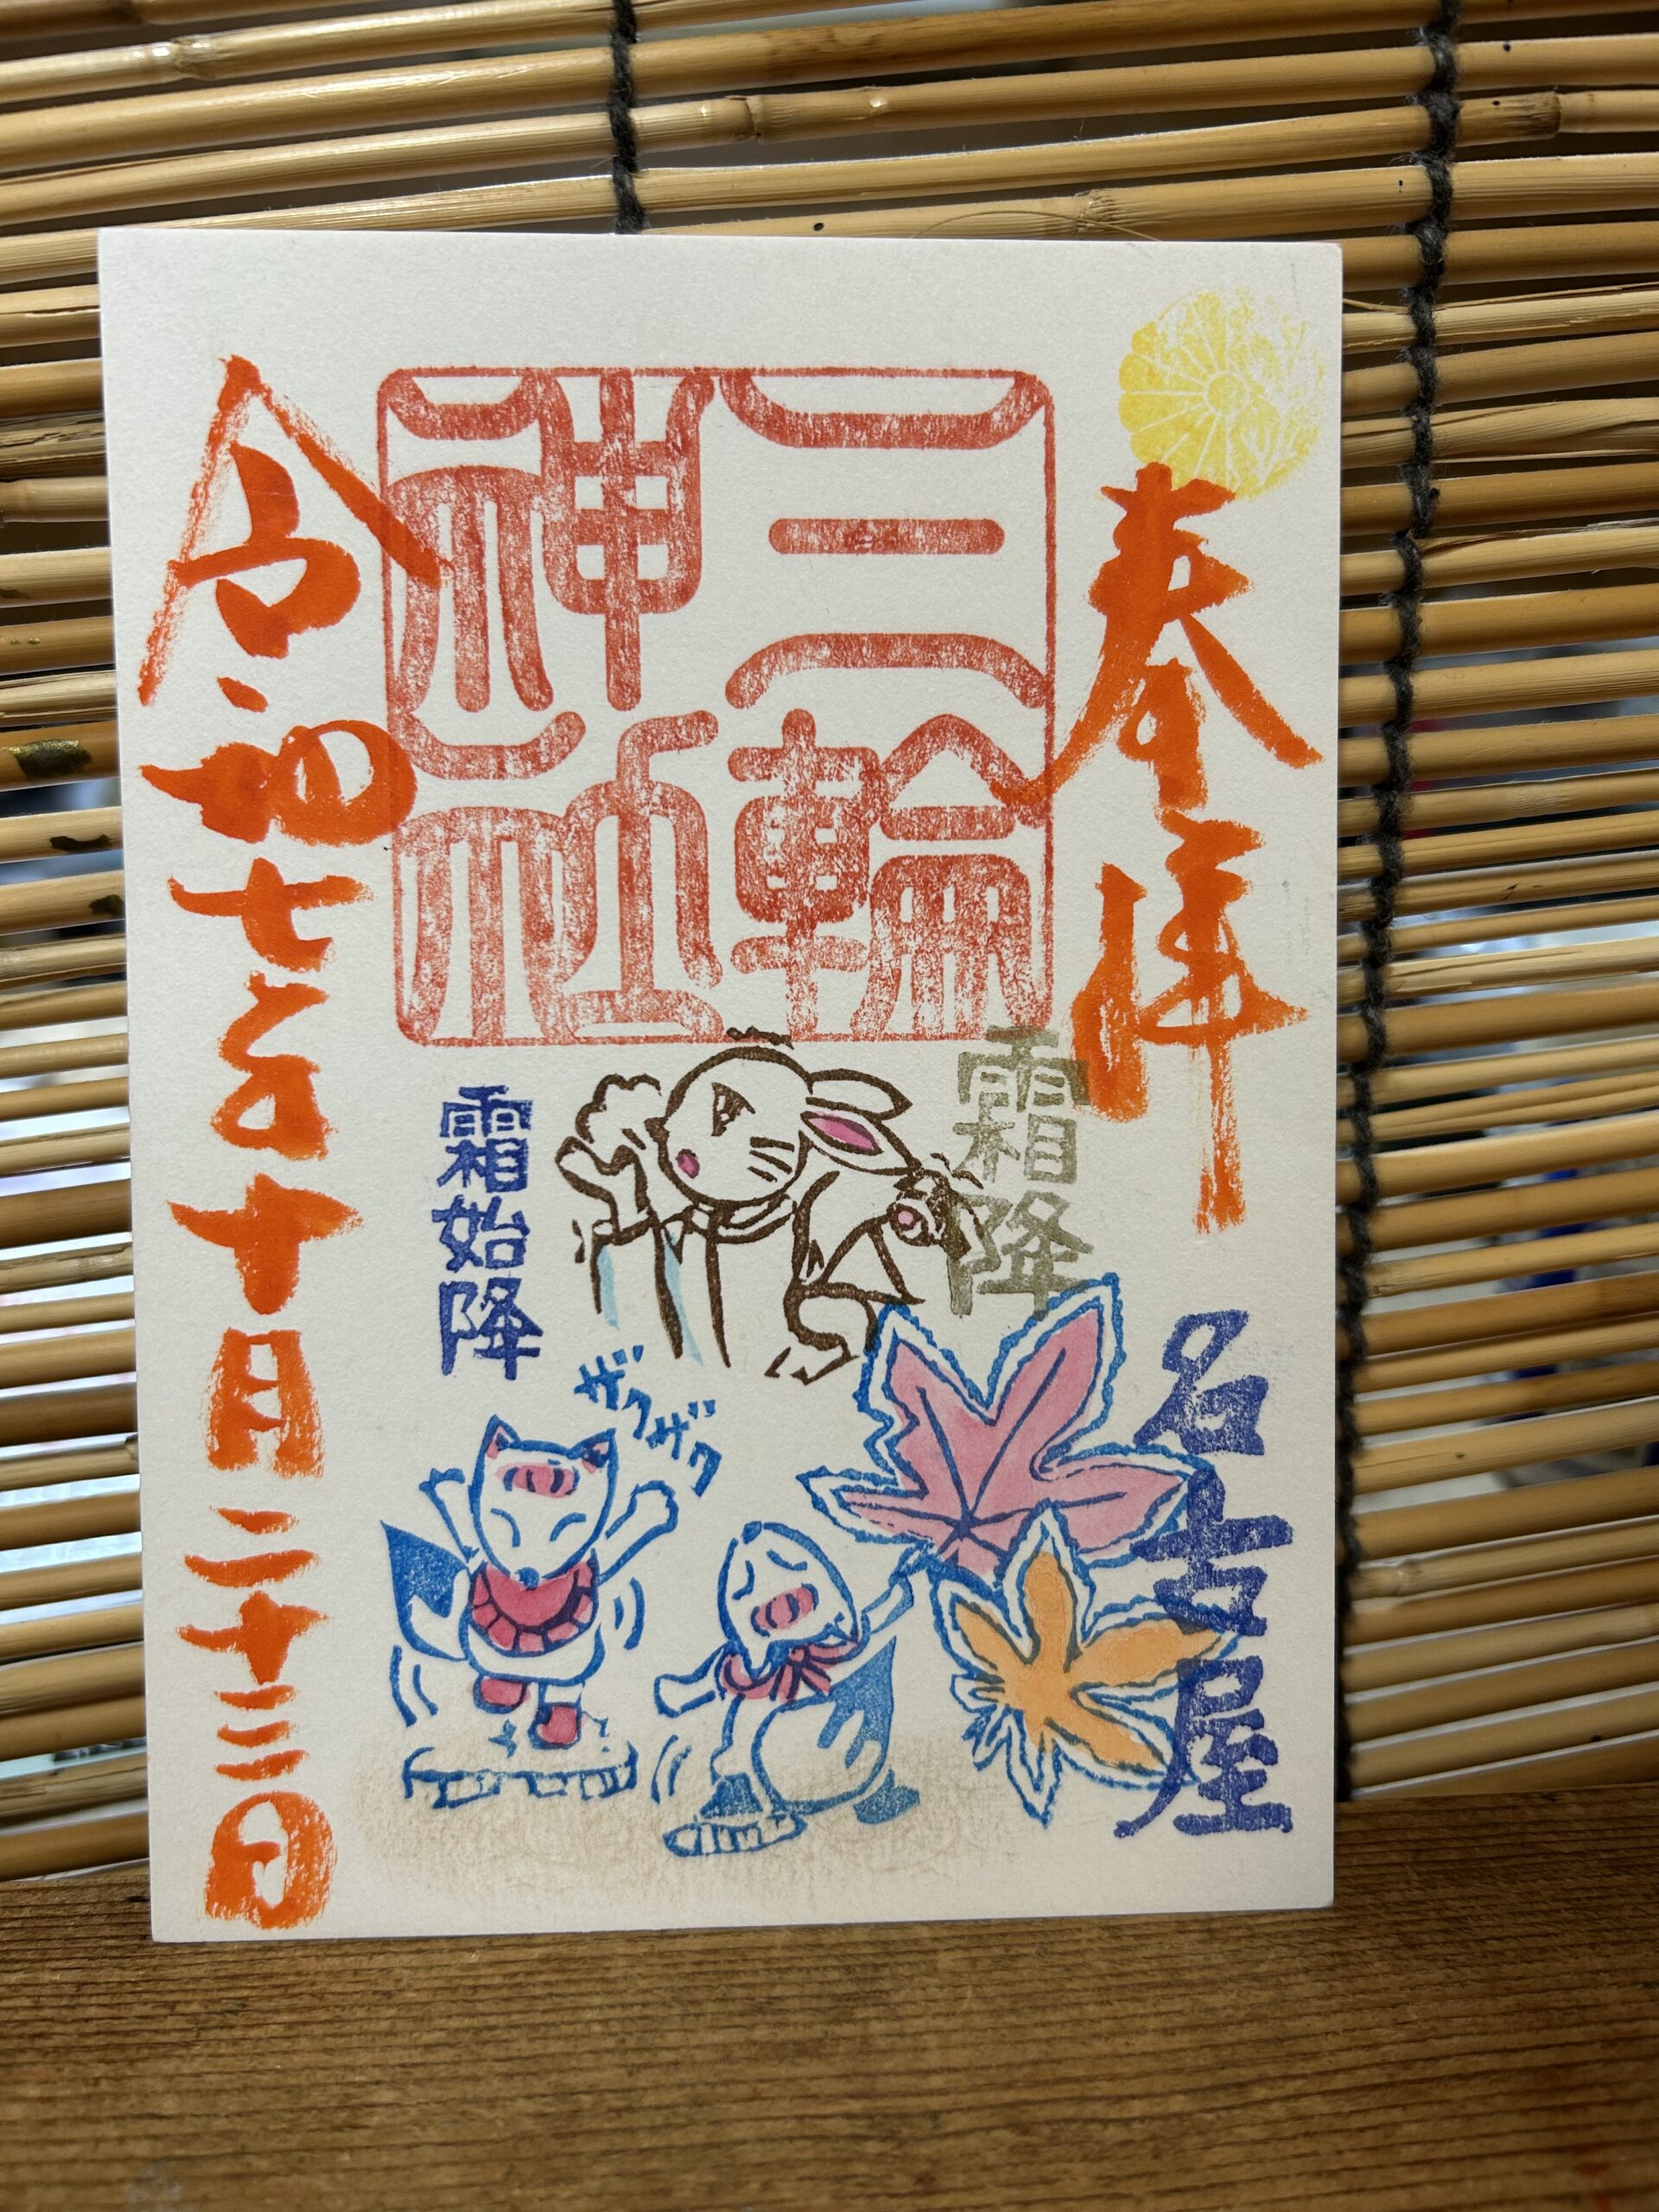 奉拝
三輪
神社
霜降
名古屋
霜始降
ザクザク
令和七年十月二十三日